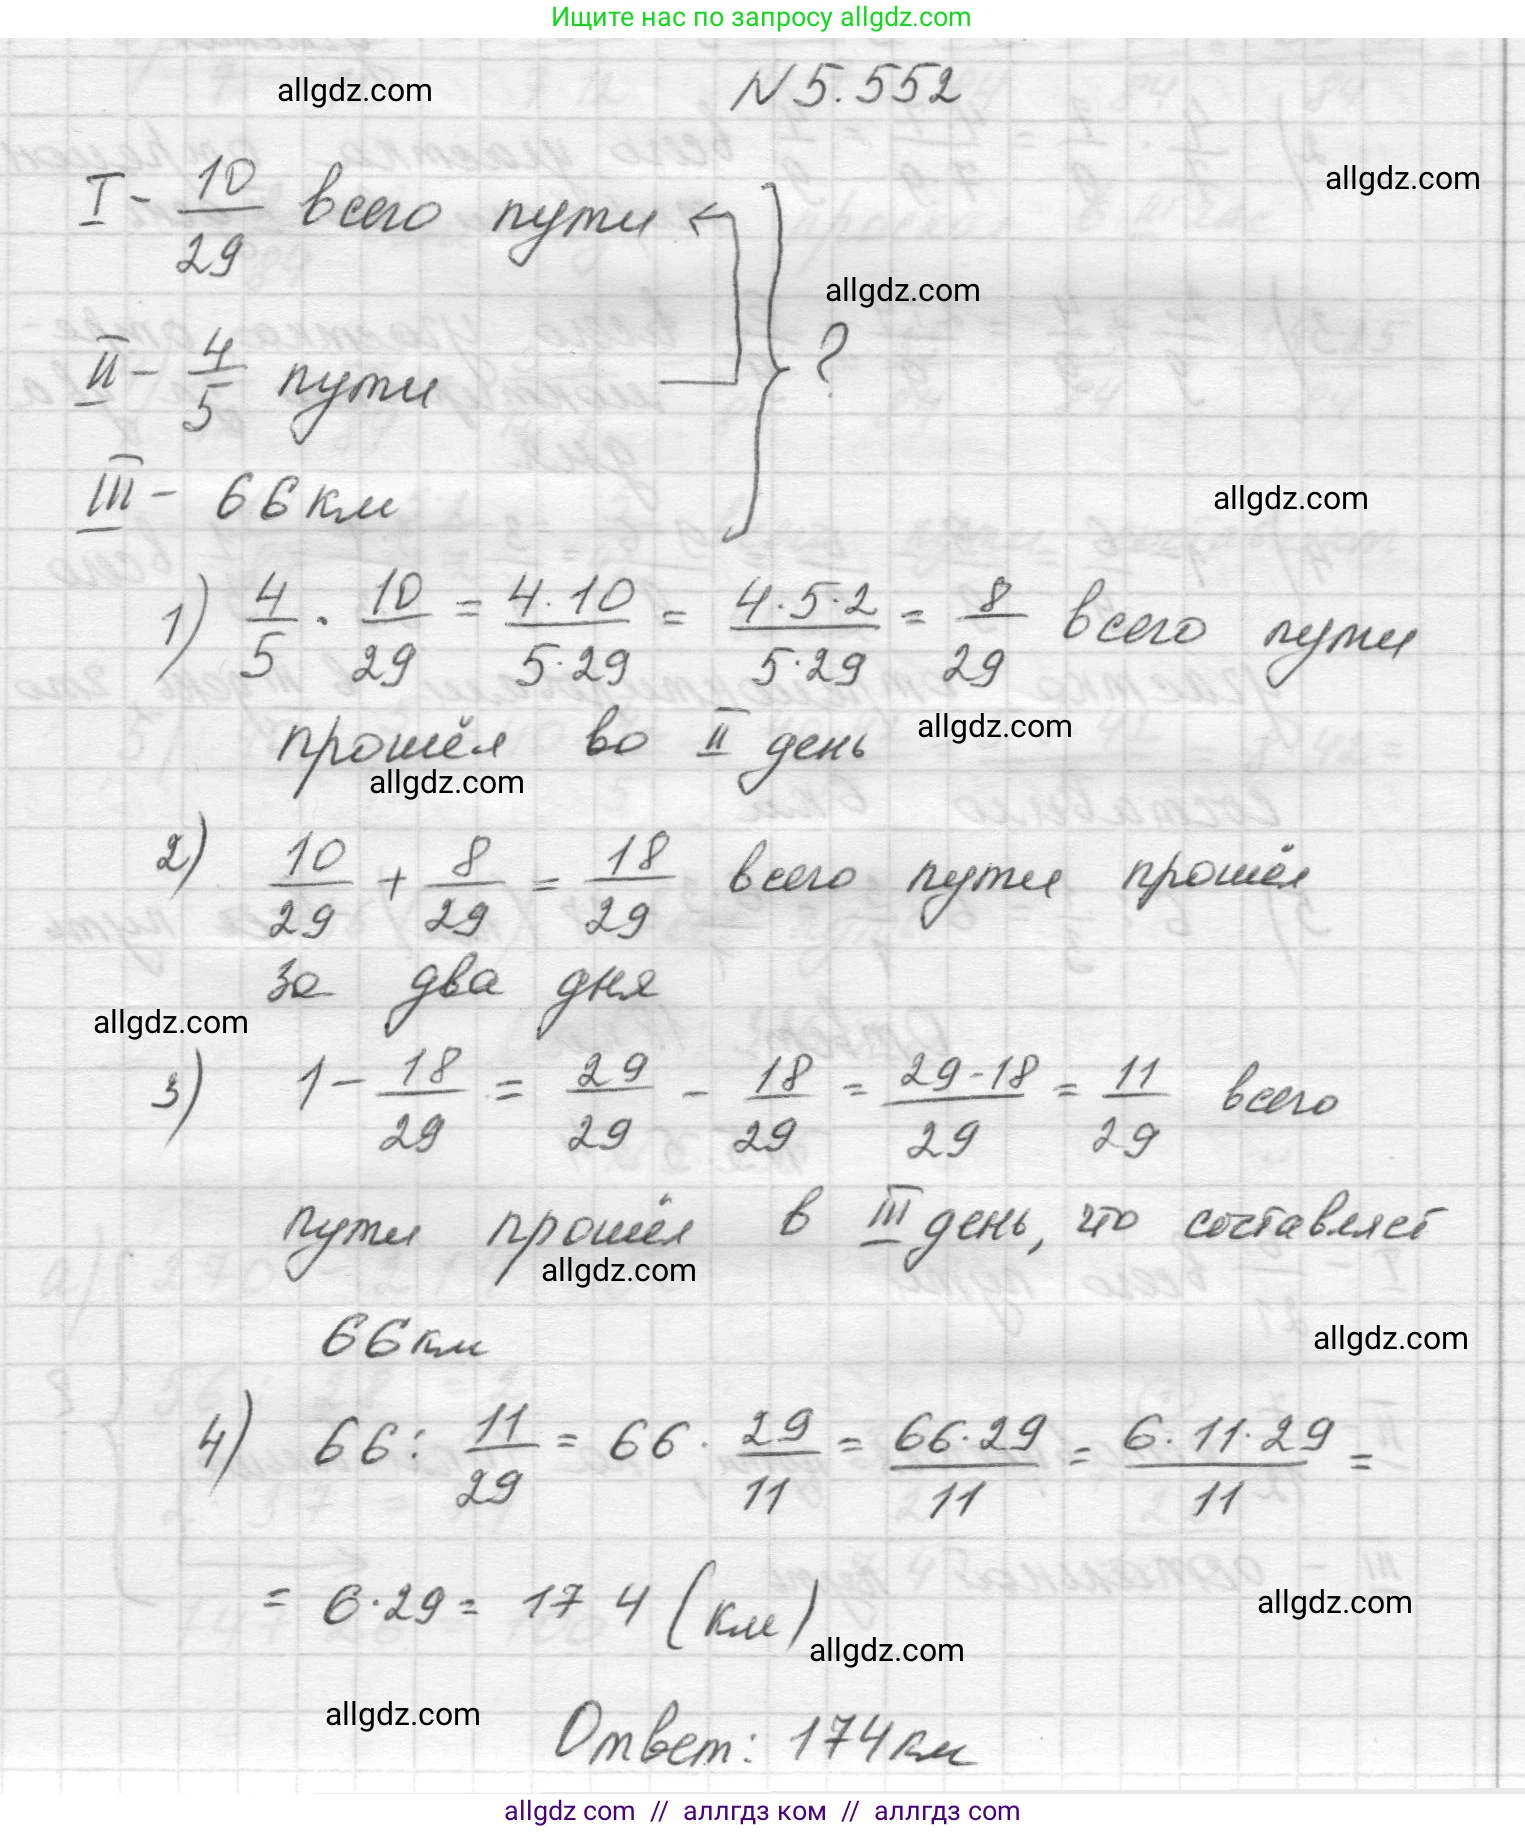 Ищите нас по запросу allgdz.com
allgdz.com
N 5.552
I - 10/29 всего пути
allgdz.com
allgdz.com
?
II - 4/5 пути
III - 66 км
allgdz.com
1) 4/5 · 10/29 = 4·10/5·29 = 4·5·2/5·29 = 8/29 всего пути
прошёл во II день
allgdz.com
allgdz.com
2) 10/29 + 8/29 = 18/29 всего пути прошёл
за два дня
allgdz.com
3) 1 - 18/29 = 29/29 - 18/29 = 29-18/29 = 11/29 всего
пути прошёл в III день, что составляет
allgdz.com
66 км
allgdz.com
4) 66 : 11/29 = 66 · 29/11 = 66·29/11 = 6·11·29/11 =
= 6·29 = 174 (км)
allgdz.com
allgdz.com
allgdz.com
Ответ: 174 км
allgdz com // аллгдз ком // аллгдз com